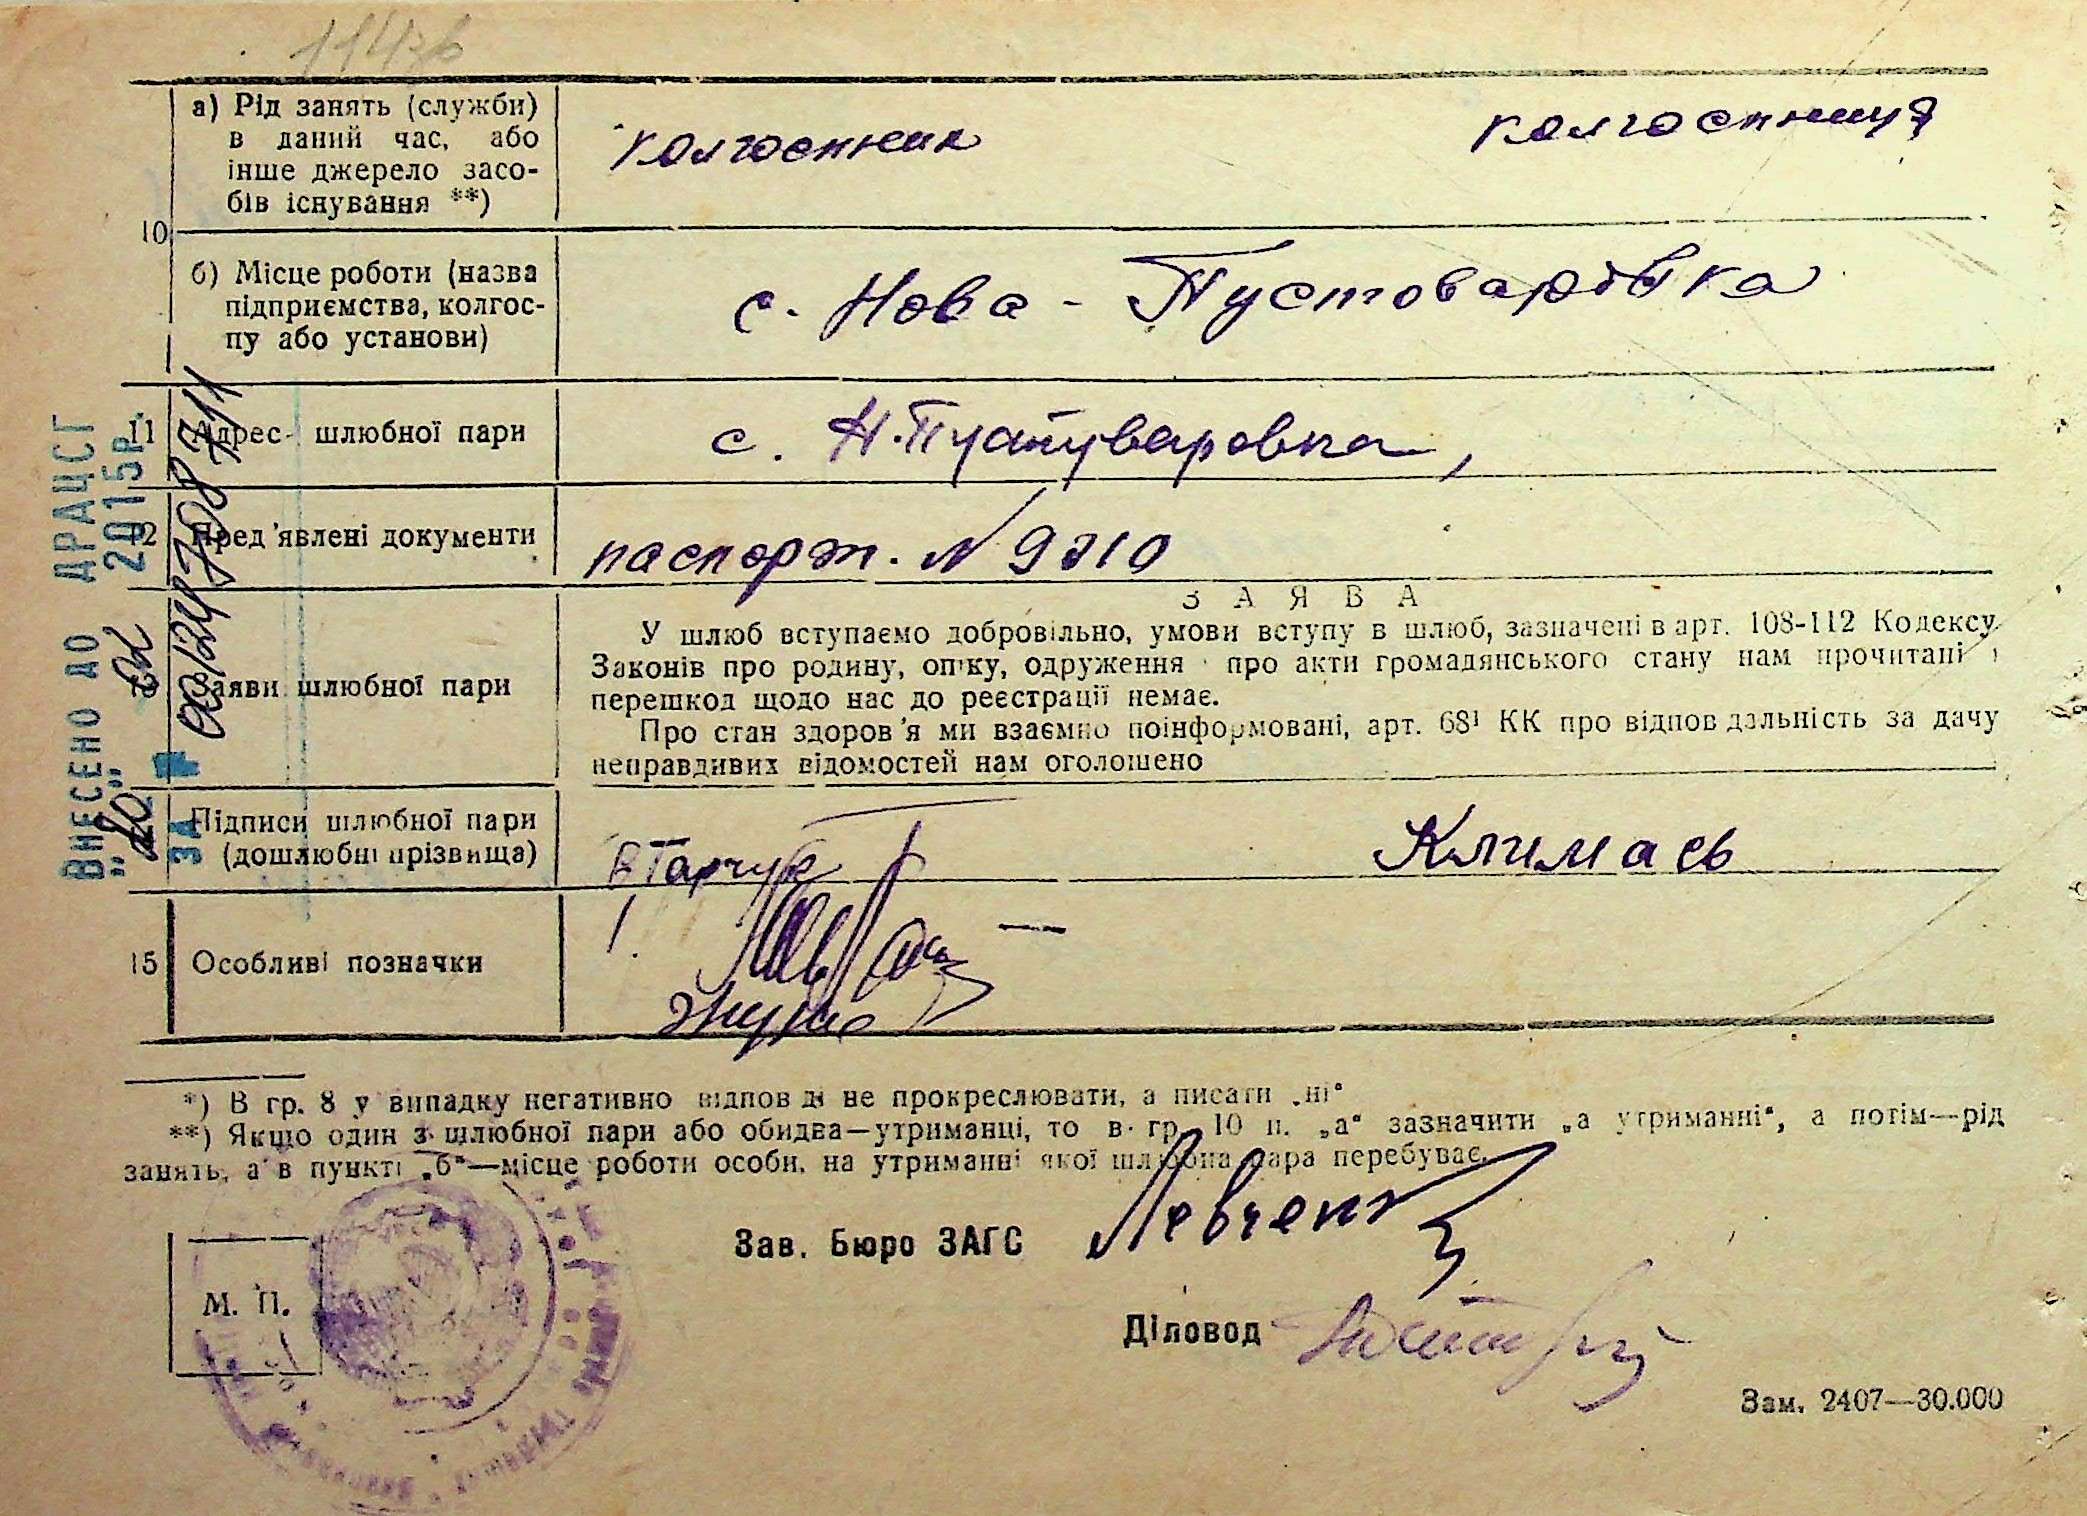 а) Рід занять (служби)
в даний час, або
інше джерело засо-
бів існування **)
колгоспник
колгоспниця
10
б) Місце роботи (назва
підприємства, колгос-
пу або установи)
с. Нова - Пустоварівка
11 Адрес шлюбної пари
с. Н.Пустуваровка,
12 Пред'явлені документи
паспорт. N 9310
ЗАЯВА
Заяви шлюбної пари
У шлюб вступаємо добровільно, умови вступу в шлюб, зазначені в арт. 108-112 Кодексу
Законів про родину, опіку, одруження про акти громадянського стану нам прочитані і
перешкод щодо нас до реєстрації немає.
Про стан здоров'я ми взаємно поінформовані, арт. 68¹ КК про відповідальність за дачу
неправдивих відомостей нам оголошено
Підписи шлюбної пари
(дошлюбні прізвища)
В Гарчук
Климась
15 Особливі позначки
*) В гр. 8 у випадку негативно відповіді не прокреслювати, а писати „ні“
**) Якщо один з шлюбної пари або обидва—утриманці, то в гр. 10 п. „а“ зазначити „а утриманні“, а потім—рід
занять, а в пункті „б“—місце роботи особи, на утриманні якої шлюбна пара перебуває.
Зав. Бюро ЗАГС
Діловод
М. П.
Зам. 2407—30.000
ВНЕСЕНО ДО ДРАЦСГ
„20“ 02 2015р.
ЗА № 00124708711